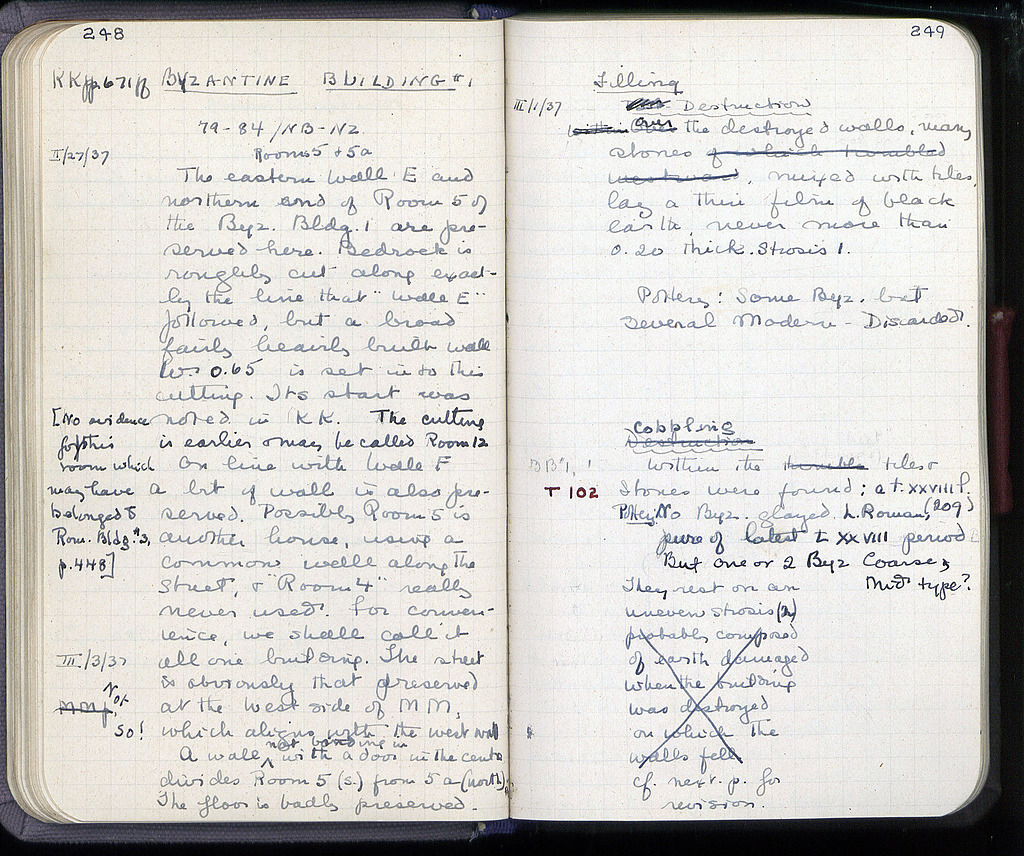 248
KK pp. 671ff BYZANTINE BUILDING #1
79-84 / NB-NZ
II/27/37 Rooms 5 + 5a
The eastern Wall E and
northern end of Room 5 of
the Byz. Bldg. 1 are pre-
served here. Bedrock is
roughly cut along exact-
ly the line that "Wall E"
followed, but a broad
fairly heavily built wall
W. 0.65 is set into this
cutting. Its start was
[No evidence noted in KK. The cutting
for this is earlier & may be called Room 12
room which On line with Wall F
may have a bit of wall is also pre-
belonged to served. Possibly Room 5 is
Rom. Bldg. #3, another house, using a
p. 448] common wall along the
street, & "Room 4" really
never used. For conven-
ience, we shall call it
III/3/37 all one building. The street
is obviously that preserved
MM f. Not at the west side of MM,
so! which aligns with the west wall
not bonding in
A wall ^ with a door in the center
divides Room 5 (s.) from 5a (north).
The floor is badly preserved.
249
Filling
III/1/37 Destruction
within Over the destroyed walls, many
stones of which tumbled
westward, mixed with tiles,
lay a thin film of black
earth, never more than
0.20 thick. Strosis 1.
Pottery: Some Byz. but
several Modern - Discarded.
Cobbling
Destruction
BB#1, 1 Within the tumble tiles &
T 102 Stones were found; at XXVIII f.
Pottery: No Byz. glazed. L. Roman, (209)
pure of latest L XXVIII period
But one or 2 Byz Coarse,
They rest on an Mod type?
uneven strosis (2)
probably composed
of earth damaged
when the building
was destroyed
on which the
walls fell
cf. next p. for
revision.